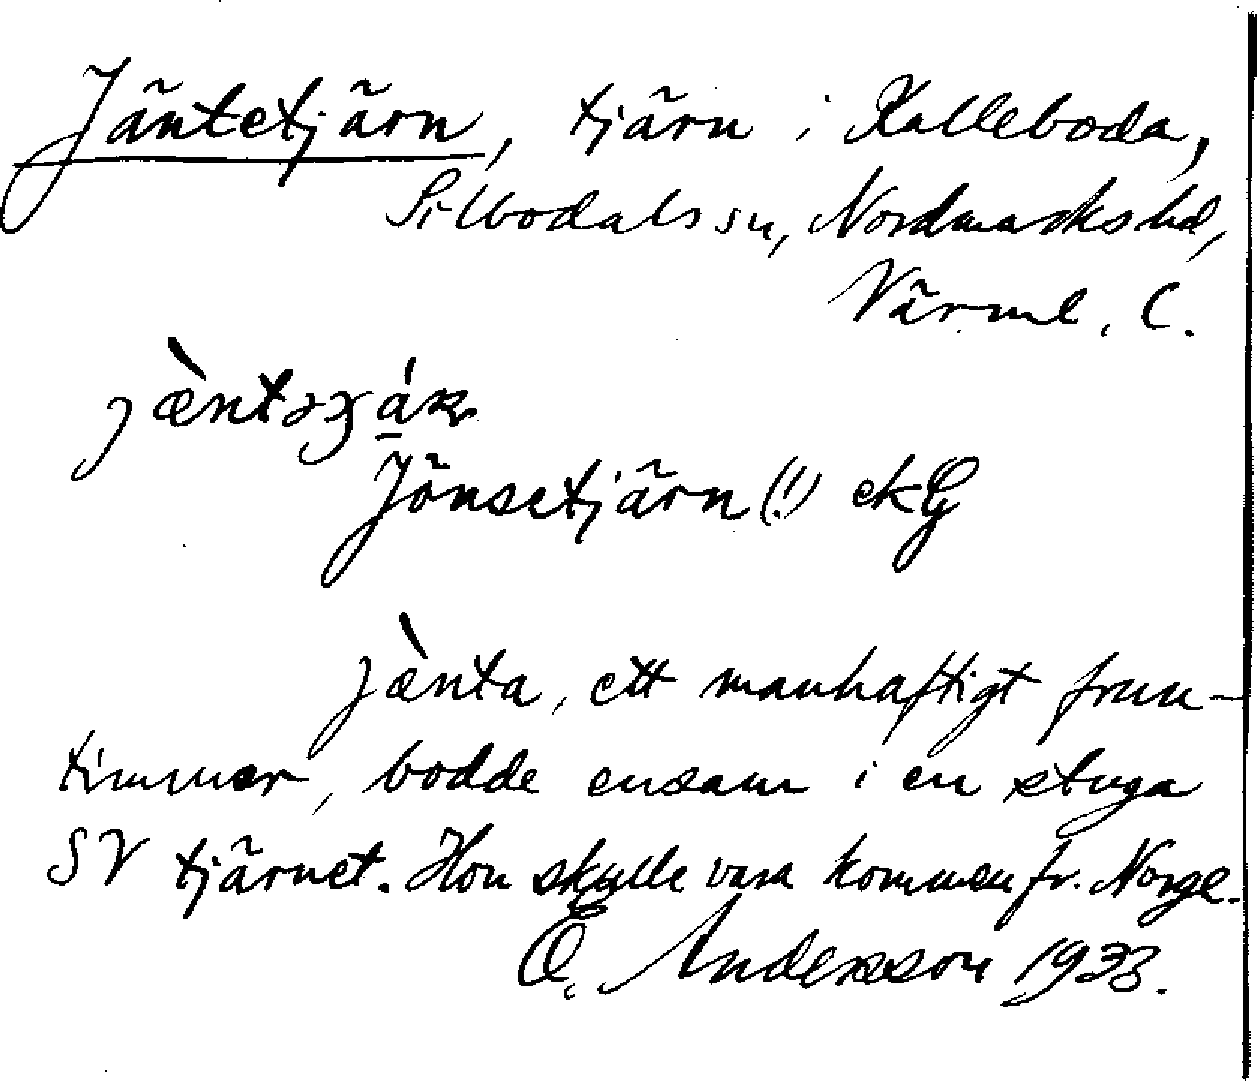 Jäntetjärn, tjärn i Kalleboda,
Silbodals sn, Nordmarks hd,
Värml. C.
jæ̀ntəʒá̱ɳ
Jönsetjärn (!) ekG
jæ̀nta, ett manhaftigt frun-
timmer, bodde ensam i en stuga
SV tjärnet. Hon skulle vara kommen fr. Norge.
Ö. Andersson 1933.